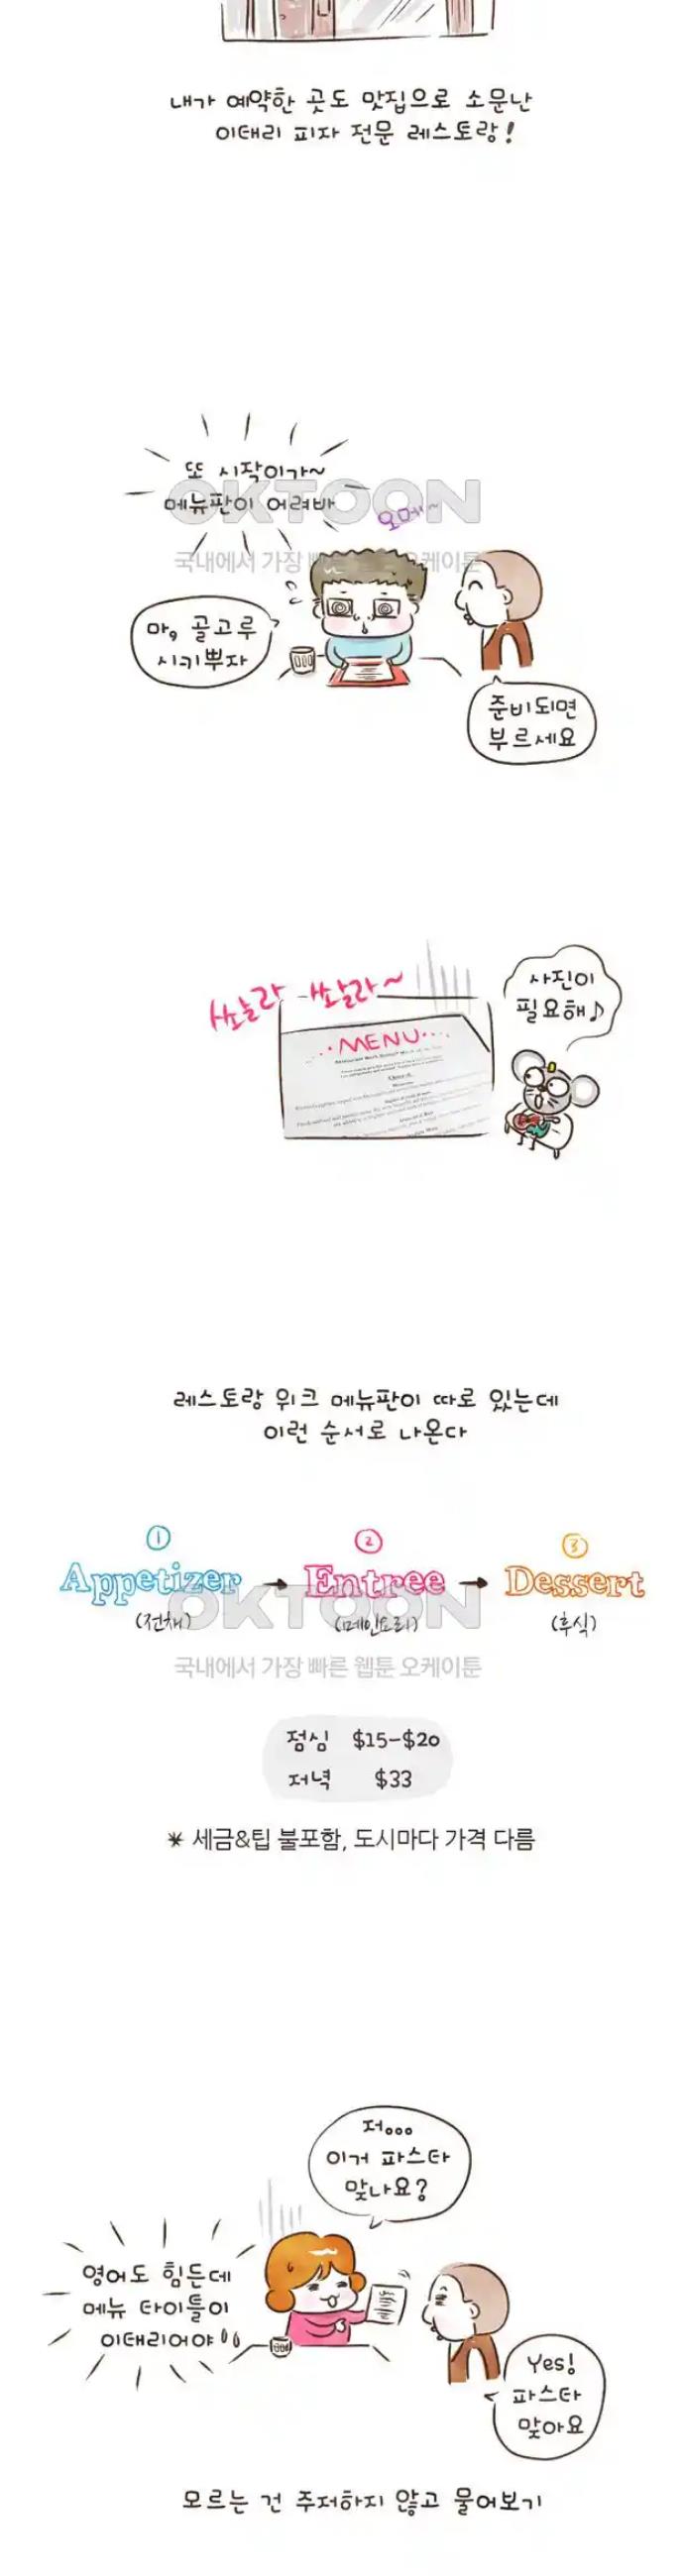 내가 예약한 곳도 맛집으로 소문난
이태리 피자 전문 레스토랑!
또 시작이가~
메뉴판이 어려바
오메~
OKTOON
국내에서 가장 빠른 오케이툰
마, 골고루
시키뿌자
준비되면
부르세요
쏼라 쏼라~
사진이
필요해♪
··MENU···
레스토랑 위크 메뉴판이 따로 있는데
이런 순서로 나온다
① ② ③
Appetizer → Entree → Dessert
(전채) (메인요리) (후식)
OKTOON
국내에서 가장 빠른 웹툰 오케이툰
점심 $15-$20
저녁 $33
* 세금&팁 불포함, 도시마다 가격 다름
저...
이거 파스타
맞나요?
영어도 힘든데
메뉴 타이틀이
이태리어야
Yes!
파스타
맞아요
모르는 건 주저하지 않고 물어보기